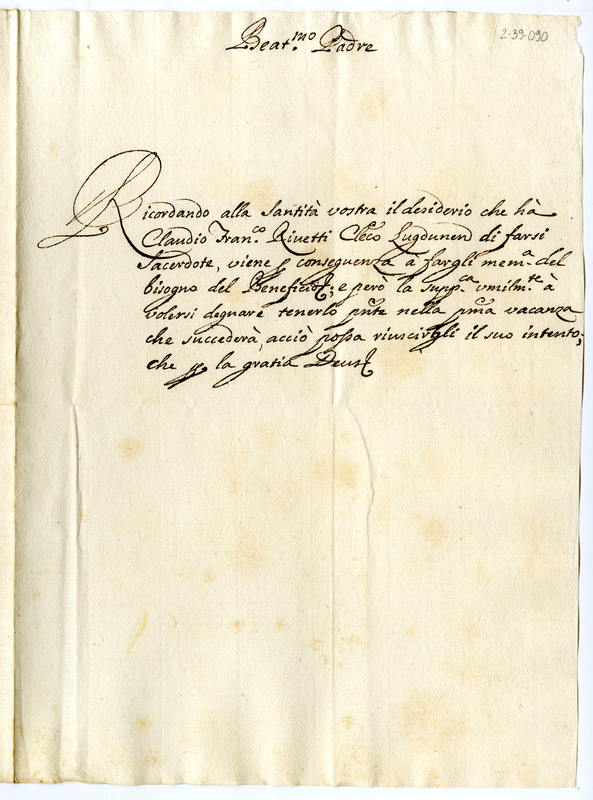 Beat.mo Padre
2-39-090
Ricordando alla Santità vostra il desiderio che hà
Claudio Fran.co Rivetti Cleco Lugdunen di farsi
Sacerdote, viene p conseguenza à fargli mem.a del
bisogno del Beneficio; e però la supp.ca vmilm.te à
volersi degnare tenerlo pnte nella pma vacanza
che succederà, acciò possa riuscirgli il suo intento;
che p la gratia Deus